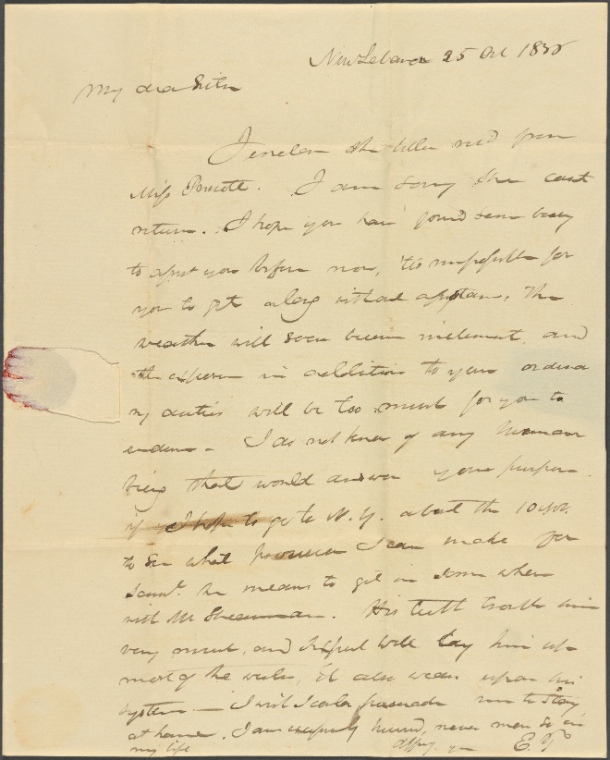 New Lebanon 25 Oct
My dear Sister
I enclose the letter recd from
Miss . I am sorry she cant
return. I hope you have found some body
to assist you before now, 'tis impossible for
you to get along without assistance. The
weather will soon become inclement, and
the exposure in addition to your ordina
ry duties will be too much for you to
endure. I do not know of any human
being that would answer your purpose.
I hope to go to N.Y. about the 10 Nov.
to see what provision I can make for
Saml. he means to get in some where
with Mr . His teeth trouble him
very much, and will lay him up
most of the winter, it also wears upon his
system. I wish I could persuade him to stay
at home. I am hurried, never more so in
my life yr E.T